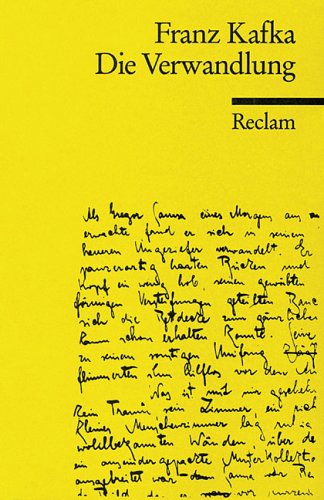 Franz Kafka
Die Verwandlung
Reclam
Als Gregor Samsa eines Morgens aus
erwachte fand er sich in seinem
heueren Ungeziefer verwandelt. Er
panzerartig harten Rücken und
Kopf ein wenig hob, seinen gewölbten
förmigen Versteifungen geteilten Bauc
sich die Bettdecke zum gänzlichen
Kaum schon erhalten konnte. Seine
zu seinem sonstigen Umfang
flimmerten ihm hilflos vor den Au
Was ist mit mir geschehen
Kein Traum, sein Zimmer, ein rich
kleines Menschenzimmer lag ruhig
wohlbekannten Wänden, über de
ein auseinandergepackte Musterkollektio
ausgebreitet war – Samsa war Re
vor